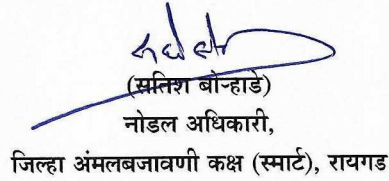 (सतिश बोऱ्हाडे)
नोडल अधिकारी,
जिल्हा अंमलबजावणी कक्ष (स्मार्ट), रायगड